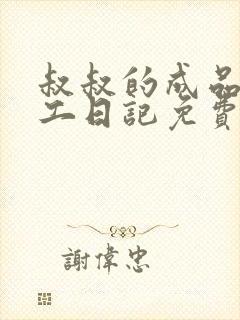 叔叔的成品
工日記免費
謝偉忠